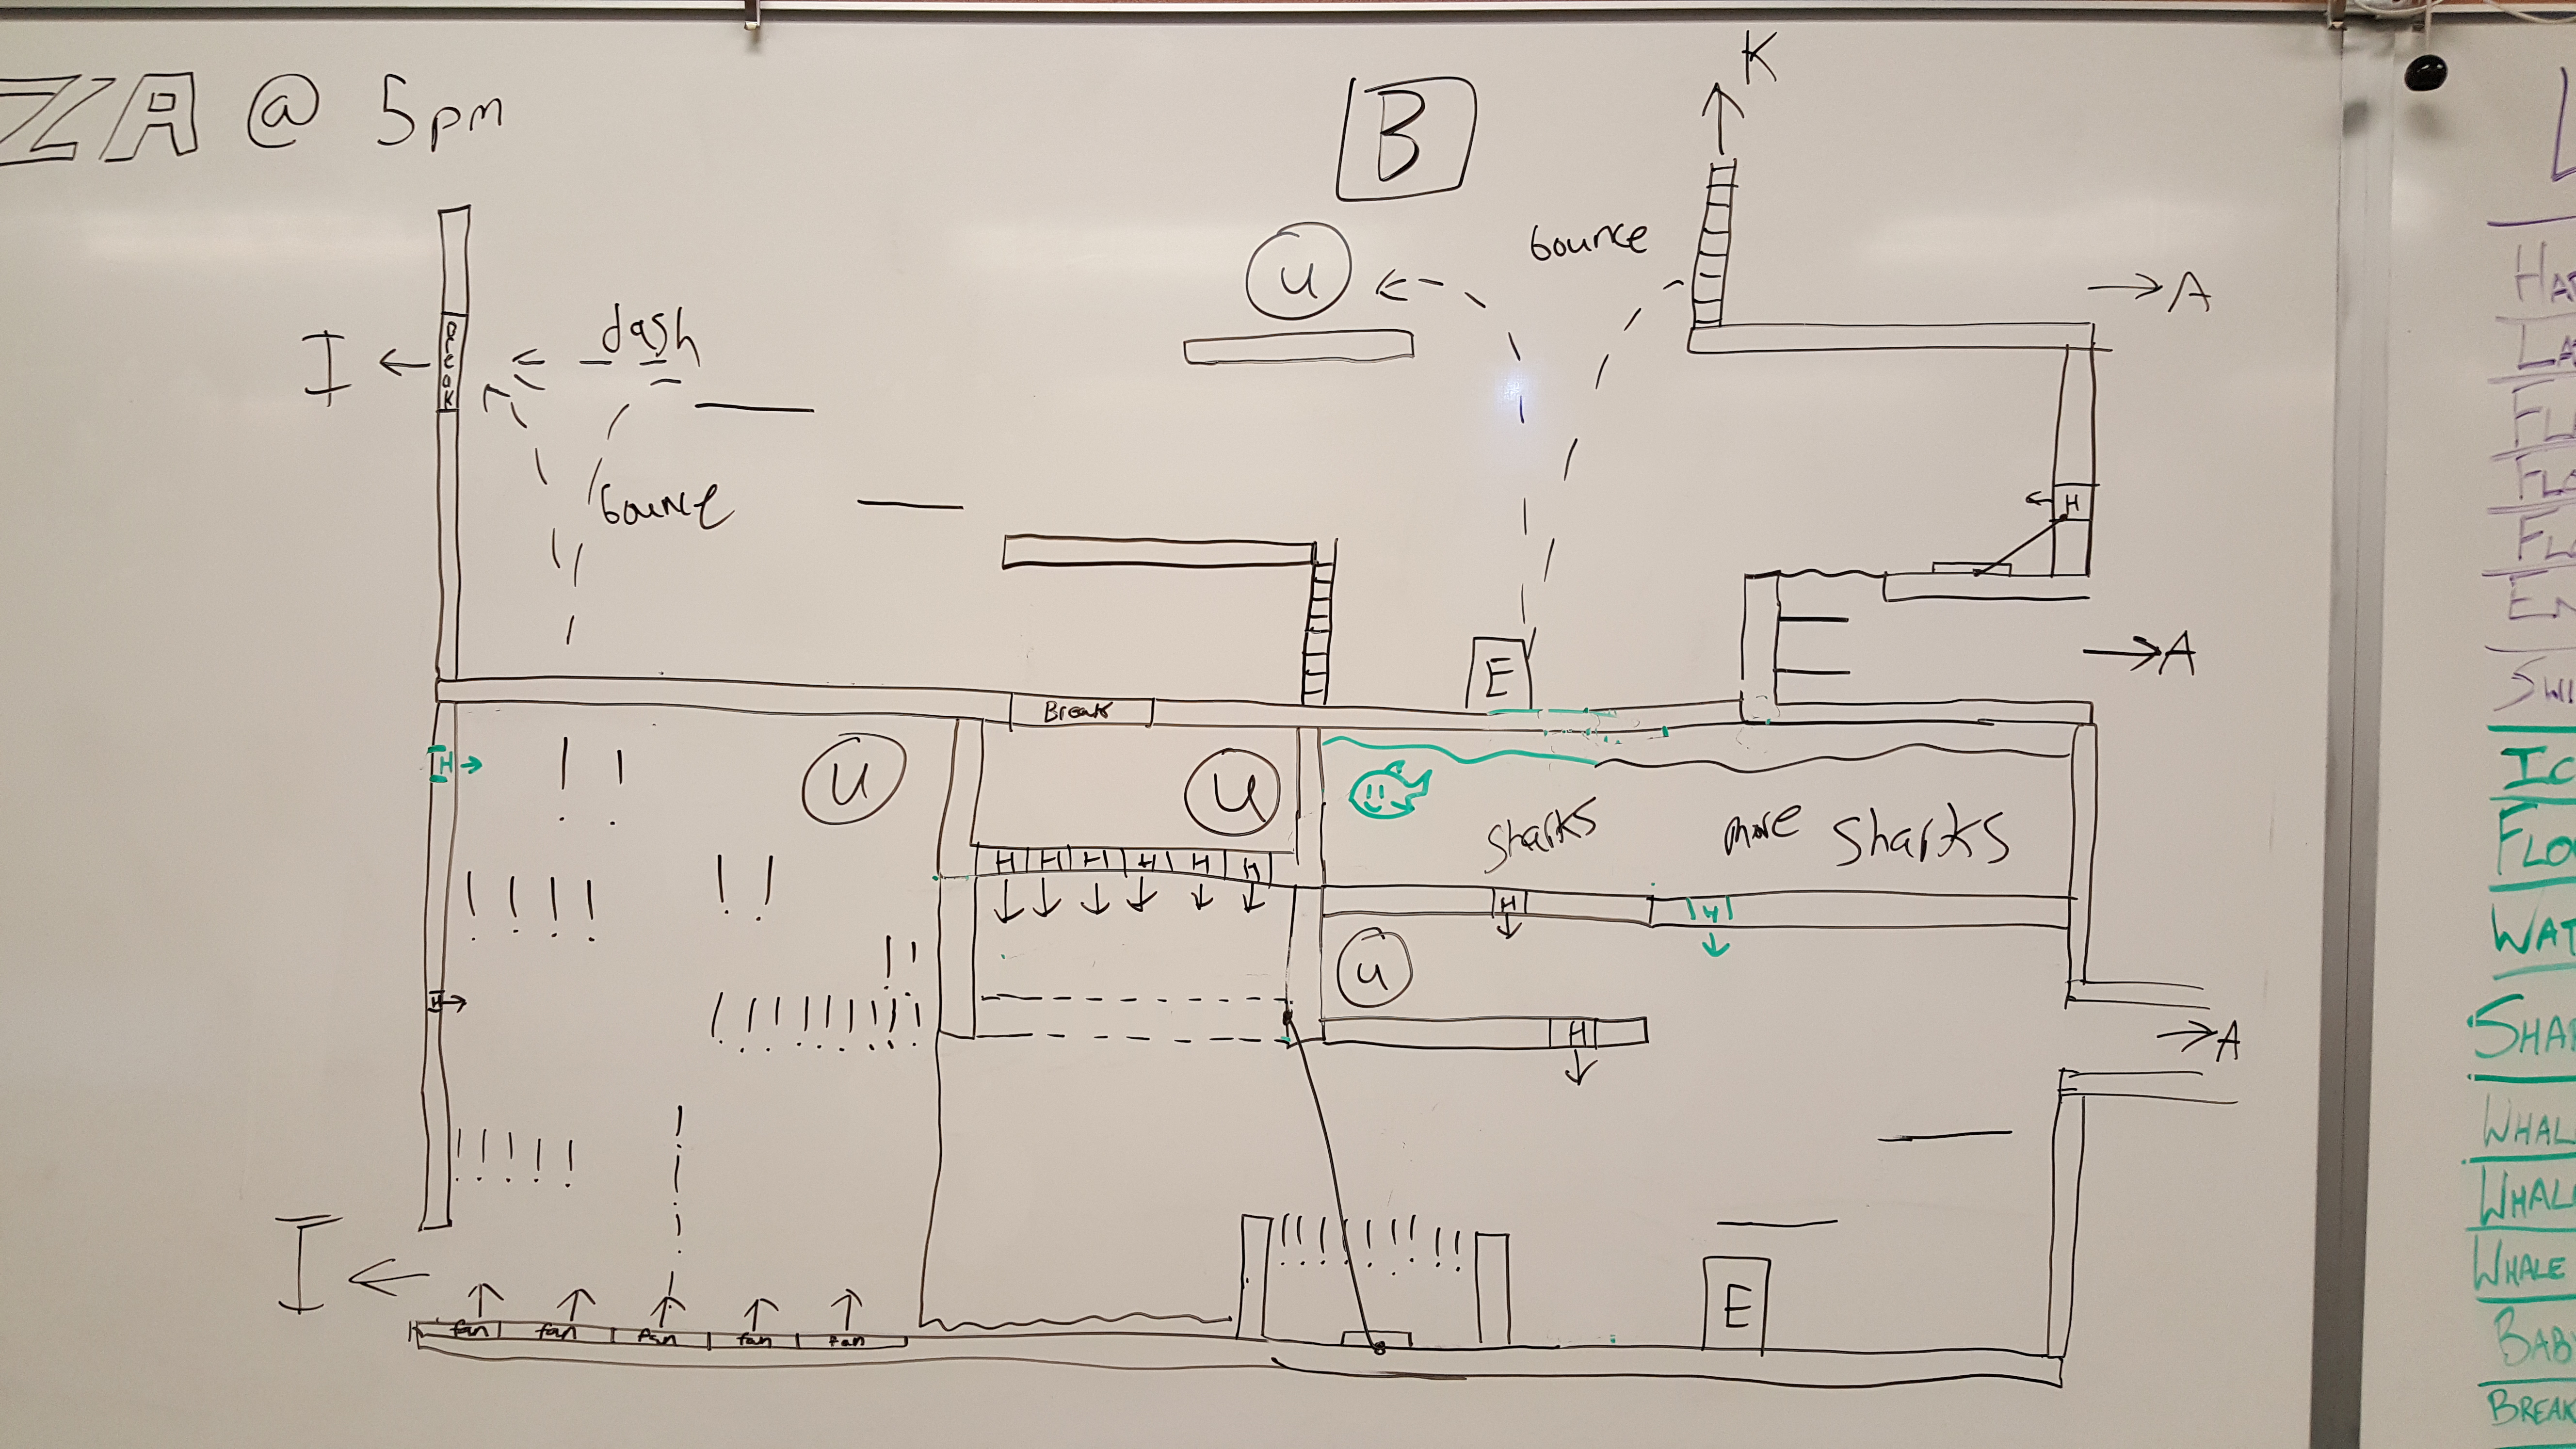 ZA @ 5pm
B
K
U
bounce
A
I
dash
Break
bounce
H
E
A
Break
H
U
U
sharks
more sharks
H H H H H H
H
H
U
H
H
A
I
E
fan fan fan fan fan
HA
LA
FL
FLO
FL
EN
SWI
IC
FLO
WAT
SHA
WHAL
WHAL
WHALE
BAB
BREAK